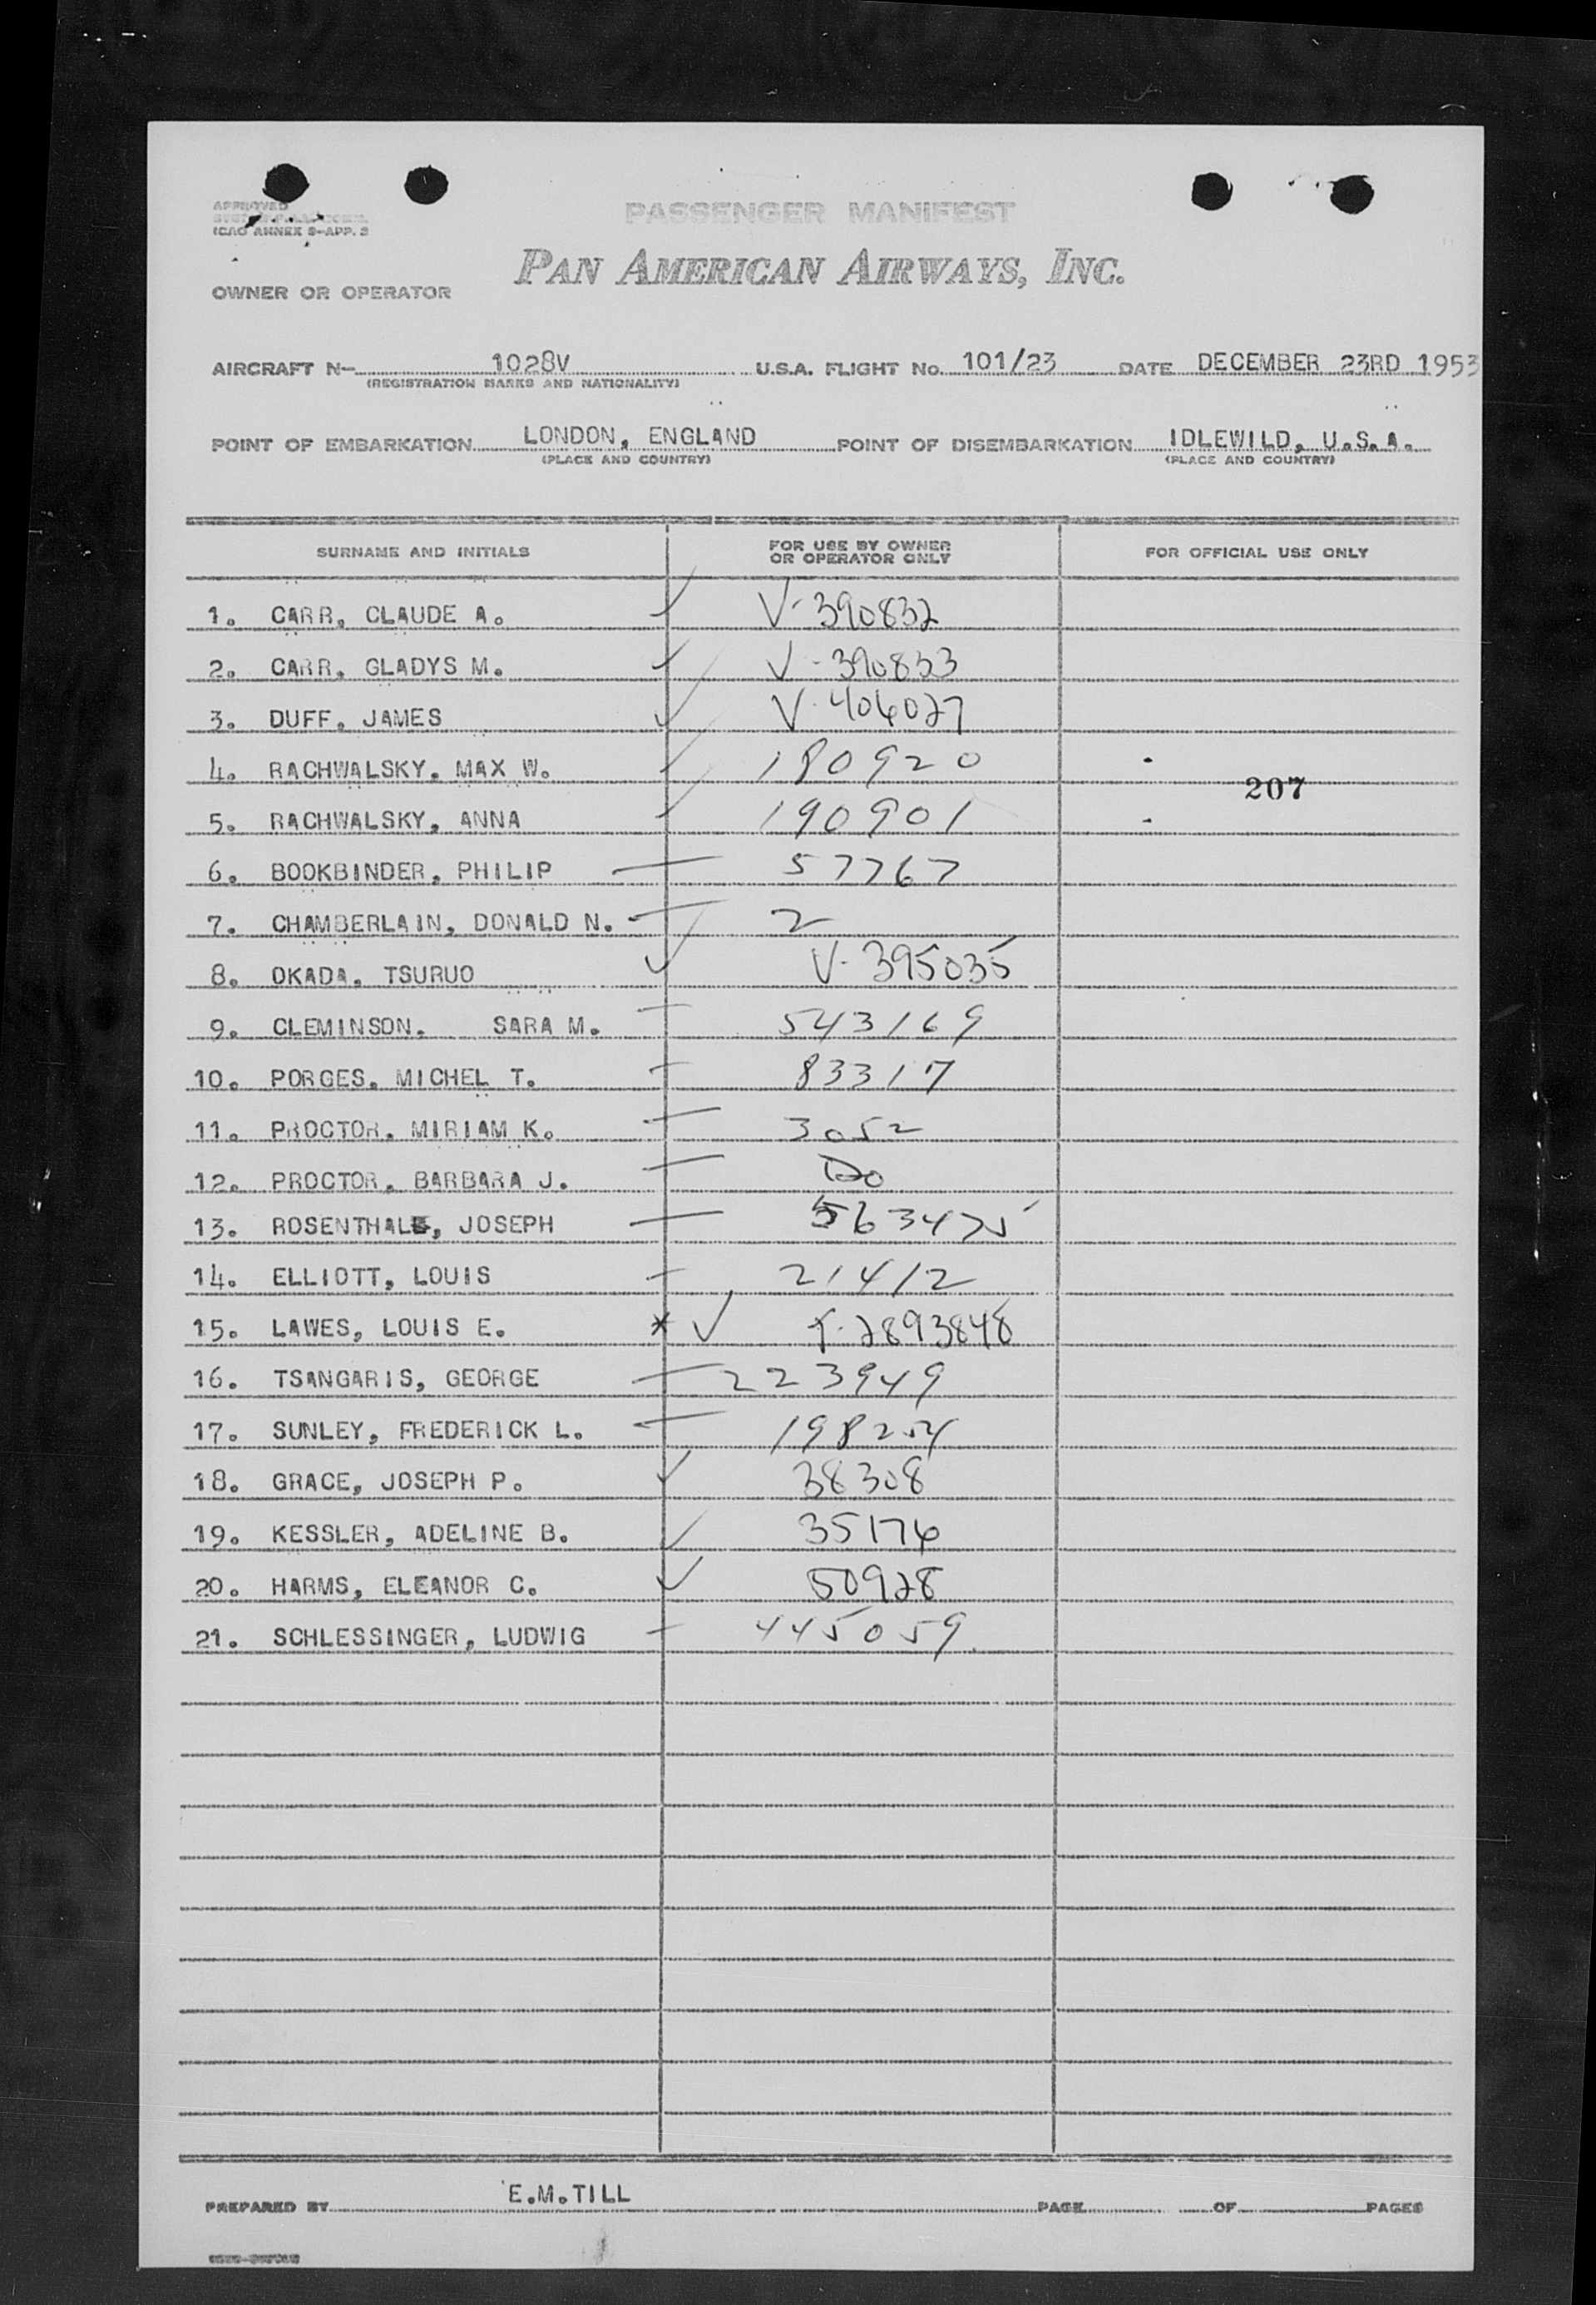 APPROVED
ICAO ANNEX 9-APP. 3
PASSENGER MANIFEST
PAN AMERICAN AIRWAYS, INC.
OWNER OR OPERATOR
AIRCRAFT N- 1028V U.S.A. FLIGHT No. 101/23 DATE DECEMBER 23RD 1953
(REGISTRATION MARKS AND NATIONALITY)
POINT OF EMBARKATION LONDON, ENGLAND POINT OF DISEMBARKATION IDLEWILD, U.S.A.
(PLACE AND COUNTRY) (PLACE AND COUNTRY)
SURNAME AND INITIALS FOR USE BY OWNER OR OPERATOR ONLY FOR OFFICIAL USE ONLY
1. CARR, CLAUDE A. V-390832
2. CARR, GLADYS M. V-390833
3. DUFF, JAMES V-406027
4. RACHWALSKY, MAX W. 180920
207
5. RACHWALSKY, ANNA 190901
6. BOOKBINDER, PHILIP 57767
7. CHAMBERLAIN, DONALD N. 2
8. OKADA, TSURUO V-395035
9. CLEMINSON, SARA M. 543169
10. PORGES, MICHEL T. 83317
11. PROCTOR, MIRIAM K. 3052
12. PROCTOR, BARBARA J. Do
13. ROSENTHAL, JOSEPH 563475
14. ELLIOTT, LOUIS 21412
15. LAWES, LOUIS E. 2893848
16. TSANGARIS, GEORGE 223949
17. SUNLEY, FREDERICK L. 198254
18. GRACE, JOSEPH P. 38308
19. KESSLER, ADELINE B. 35176
20. HARMS, ELEANOR C. 50928
21. SCHLESSINGER, LUDWIG 445059
PREPARED BY E.M.TILL PAGE OF PAGES